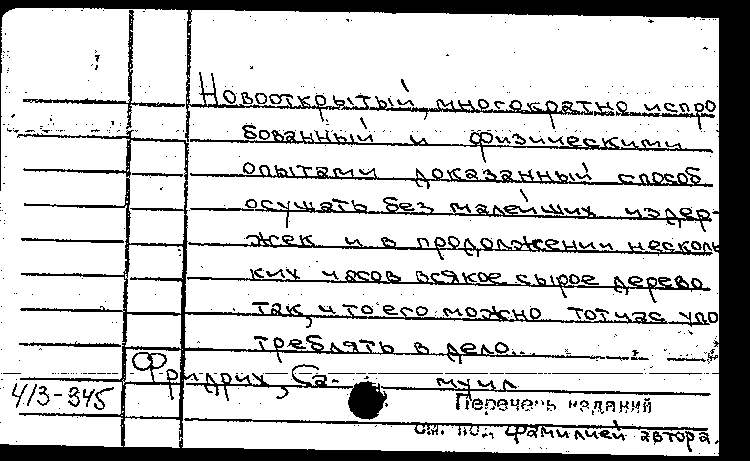 Новооткрытый, многократно испро
бованный и физическими
опытами доказанный способ
осушать без малейших издер-
жек и в продолжении несколь
ких часов всякое сырое дерево
так, что его можно тотчас упо
треблять в дело...
Фридрих, Са- муил
413-345
Перечень изданий
см. под фамилией автора.